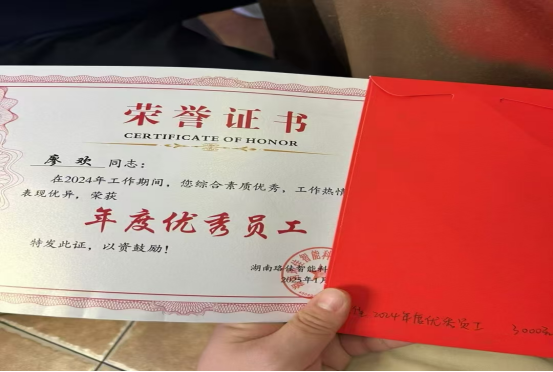 荣誉证书
CERTIFICATE OF HONOR
廖 欢 同志：
在2024年工作期间，您综合素质优秀，工作热情
表现优异，荣获
年度优秀员工
特发此证，以资鼓励！
湖南珞佳智能科
2025年1月
2024年度优秀员工 3000元